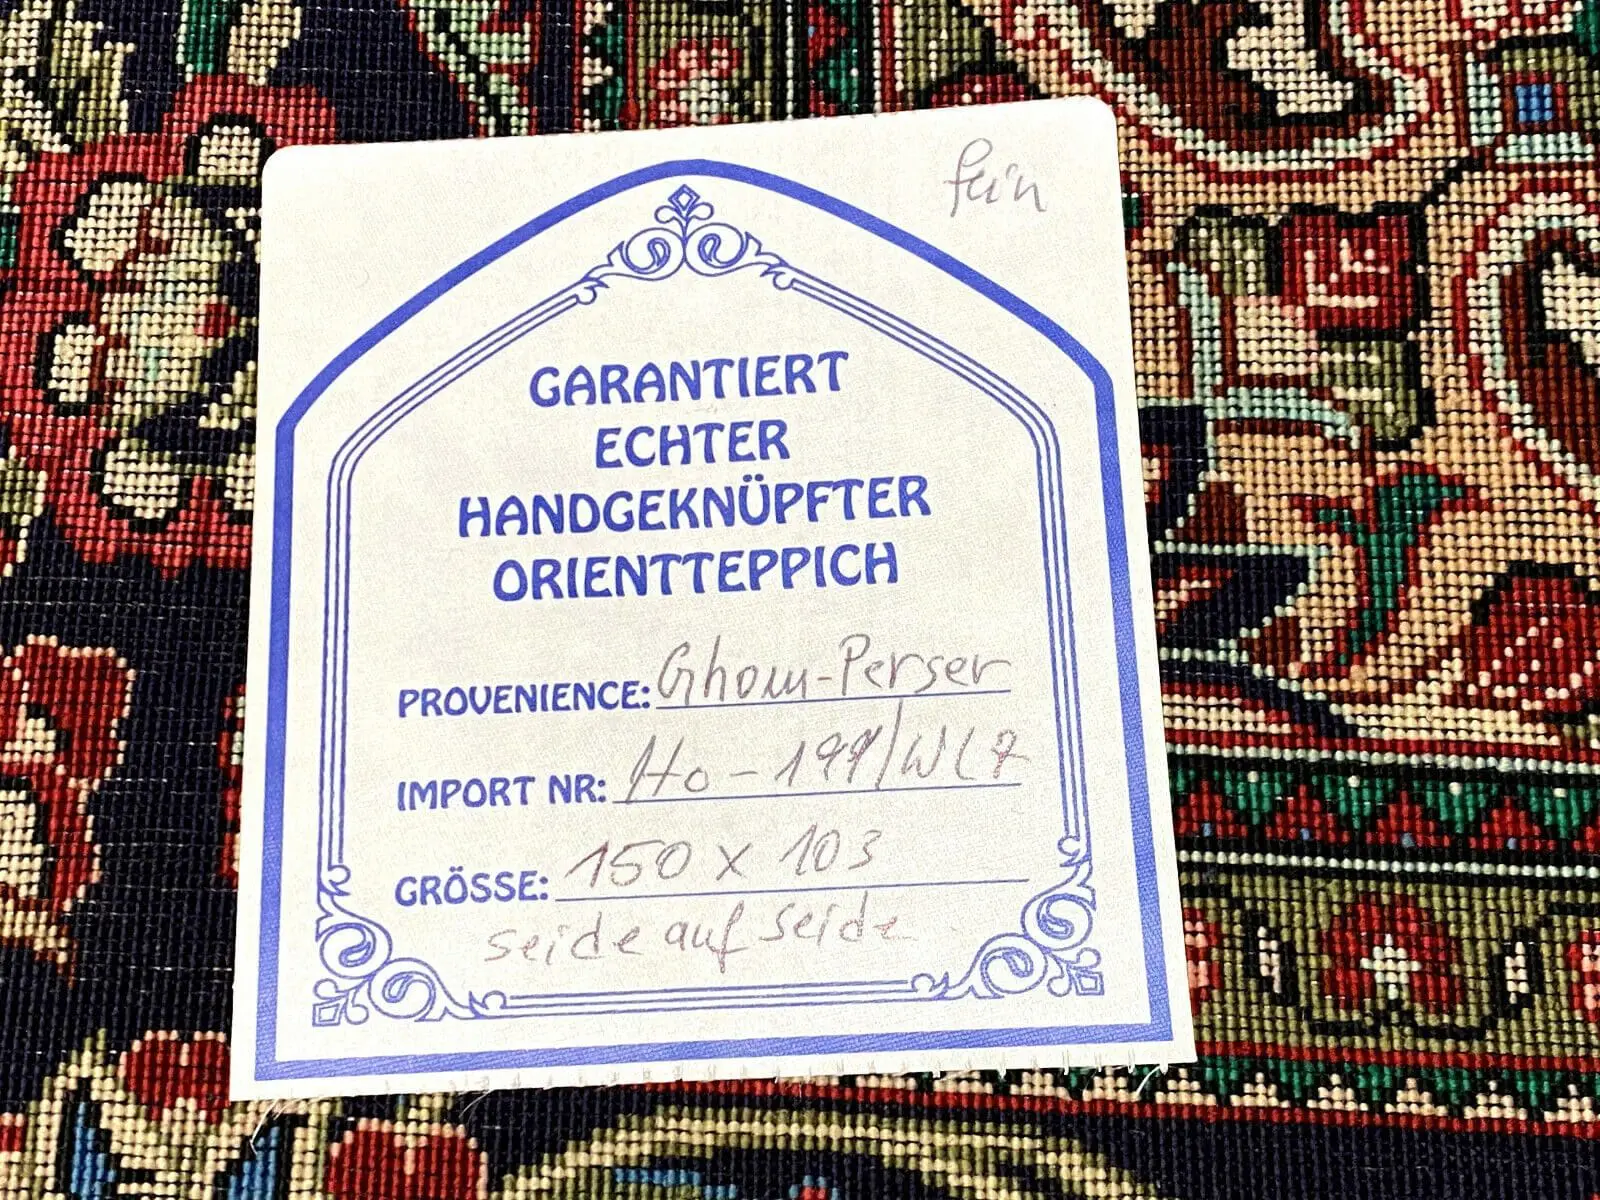 fein
GARANTIERT
ECHTER
HANDGEKNÜPFTER
ORIENTTEPPICH
PROVENIENCE: Ghom-Perser
IMPORT NR: Ho-199/WL7
GRÖSSE: 150 x 103
seide auf seide